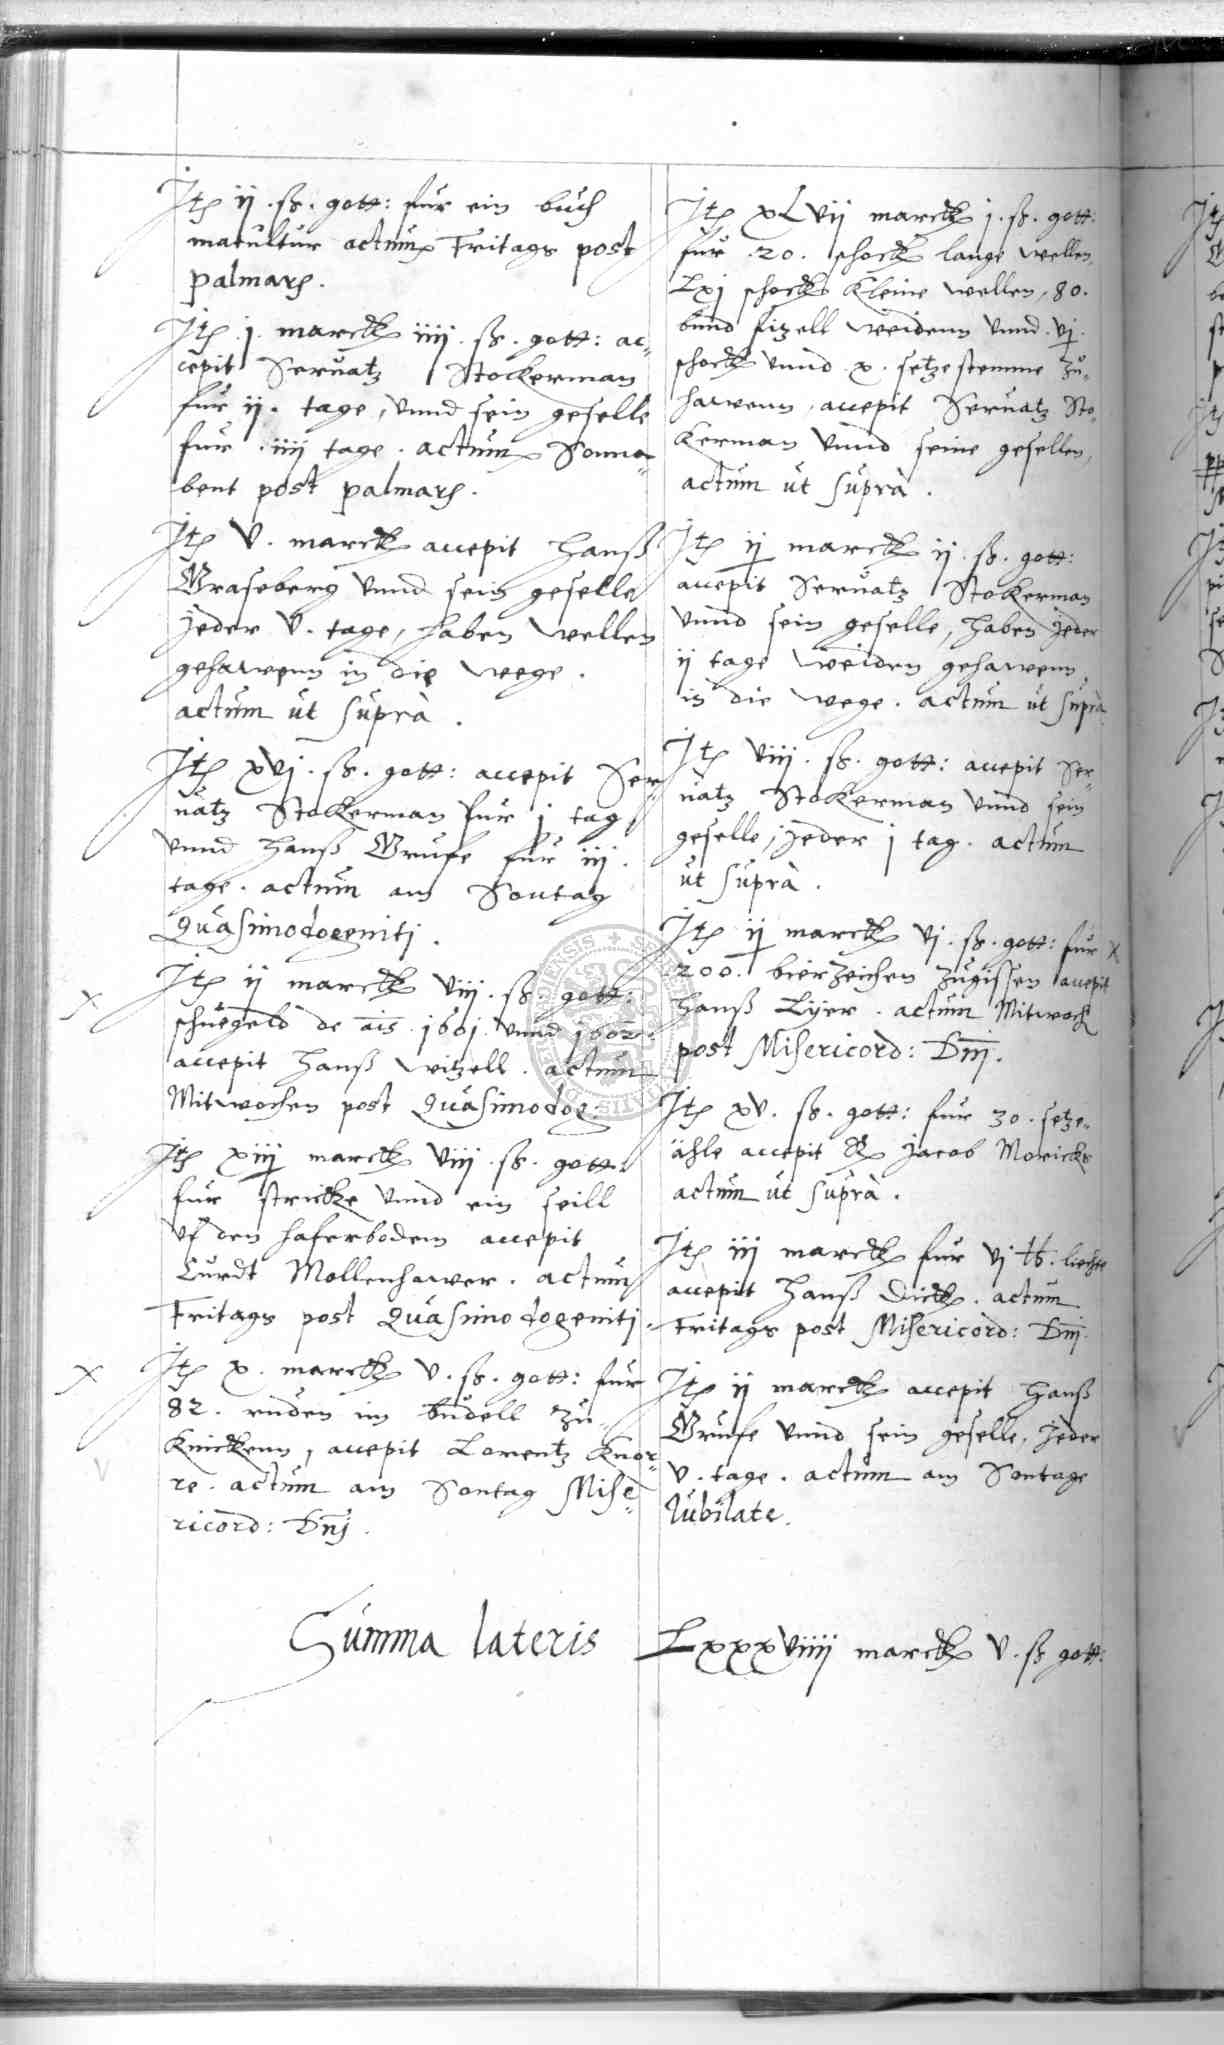 Itē ij. ß. gott: fur ein buch
maculatur actum Fritags post
palmarū.
Itē .j. marck iiij. ß. gott: ac-
cepit Servatz Stockerman
fur ij. tage, vnnd sein geselle
fur .iiij tage. actum Sonna-
bent post palmarū.
Itē v. marck accepit Hanß
Graseberg vnnd sein geselle
jeder v. tage, haben wellen
gehawenn in die wege.
actum ut suprà.
Itē xvj. ß. gott: accepit Ser-
uatz Stokerman fur j tag
vnnd Hanß Grufe fur iij.
tage. actum am Sontag
Quasimodogeniti.
Itē ij marck viij. ß. gott:
schuegeld de ais. 1601. vnnd 1602.
accepit Hanß witzell. actum
Mitwochen post Quasimodog:
Itē xiij marck viij. ß. gott:
fur stricke vnnd ein seill
vf den haferbodem accepit
Curdt Mollenhawer. actum
Fritags post Quasimodogeniti.
Itē x. marck v. ß. gott: fur
82. ruden im budell zu-
knickenn, accepit Lorentz Knor-
re. actum am Sontag Mise-
ricord: Dnj.
Itē xLvij marck j. ß. gott:
fur .20. schock lange wellen,
Lxj schock kleine wellen, 80.
bund fitzell weidenn vnnd .vj.
schock vnnd .x. setzestemme zu-
hawenn, accepit Servatz Sto-
kerman vnnd seine gesellen,
actum ut suprà.
Itē ij marck ij. ß. gott:
accepit Servatz Stokerman
vnnd sein geselle, haben jeder
ij tage weiden gehawenn
in die wege. actum ut suprà
Itē viij. ß. gott: accepit Ser-
uatz Stokerman vnnd sein
geselle, jeder j tag. actum
ut suprà.
Itē ij marck vj. ß. gott: fur
200. bierzeichen zugissen accepit
Hanß Lÿer. actum Mitwoch
post Misericord: Dnj.
Itē xv. ß. gott: fur 30. setze-
ähle accepit Jacob Moricks
actum ut suprà.
Itē iij marck fur vj lb. liechte
accepit Hanß Dick. actum
Fritags post Misericord: Dnj.
Itē ij marck accepit Hanß
Grufe vnnd sein geselle, jeder
v. tage. actum am Sontage
Iubilate.
Summa lateris Lxxxviiij marck v. ß gott: